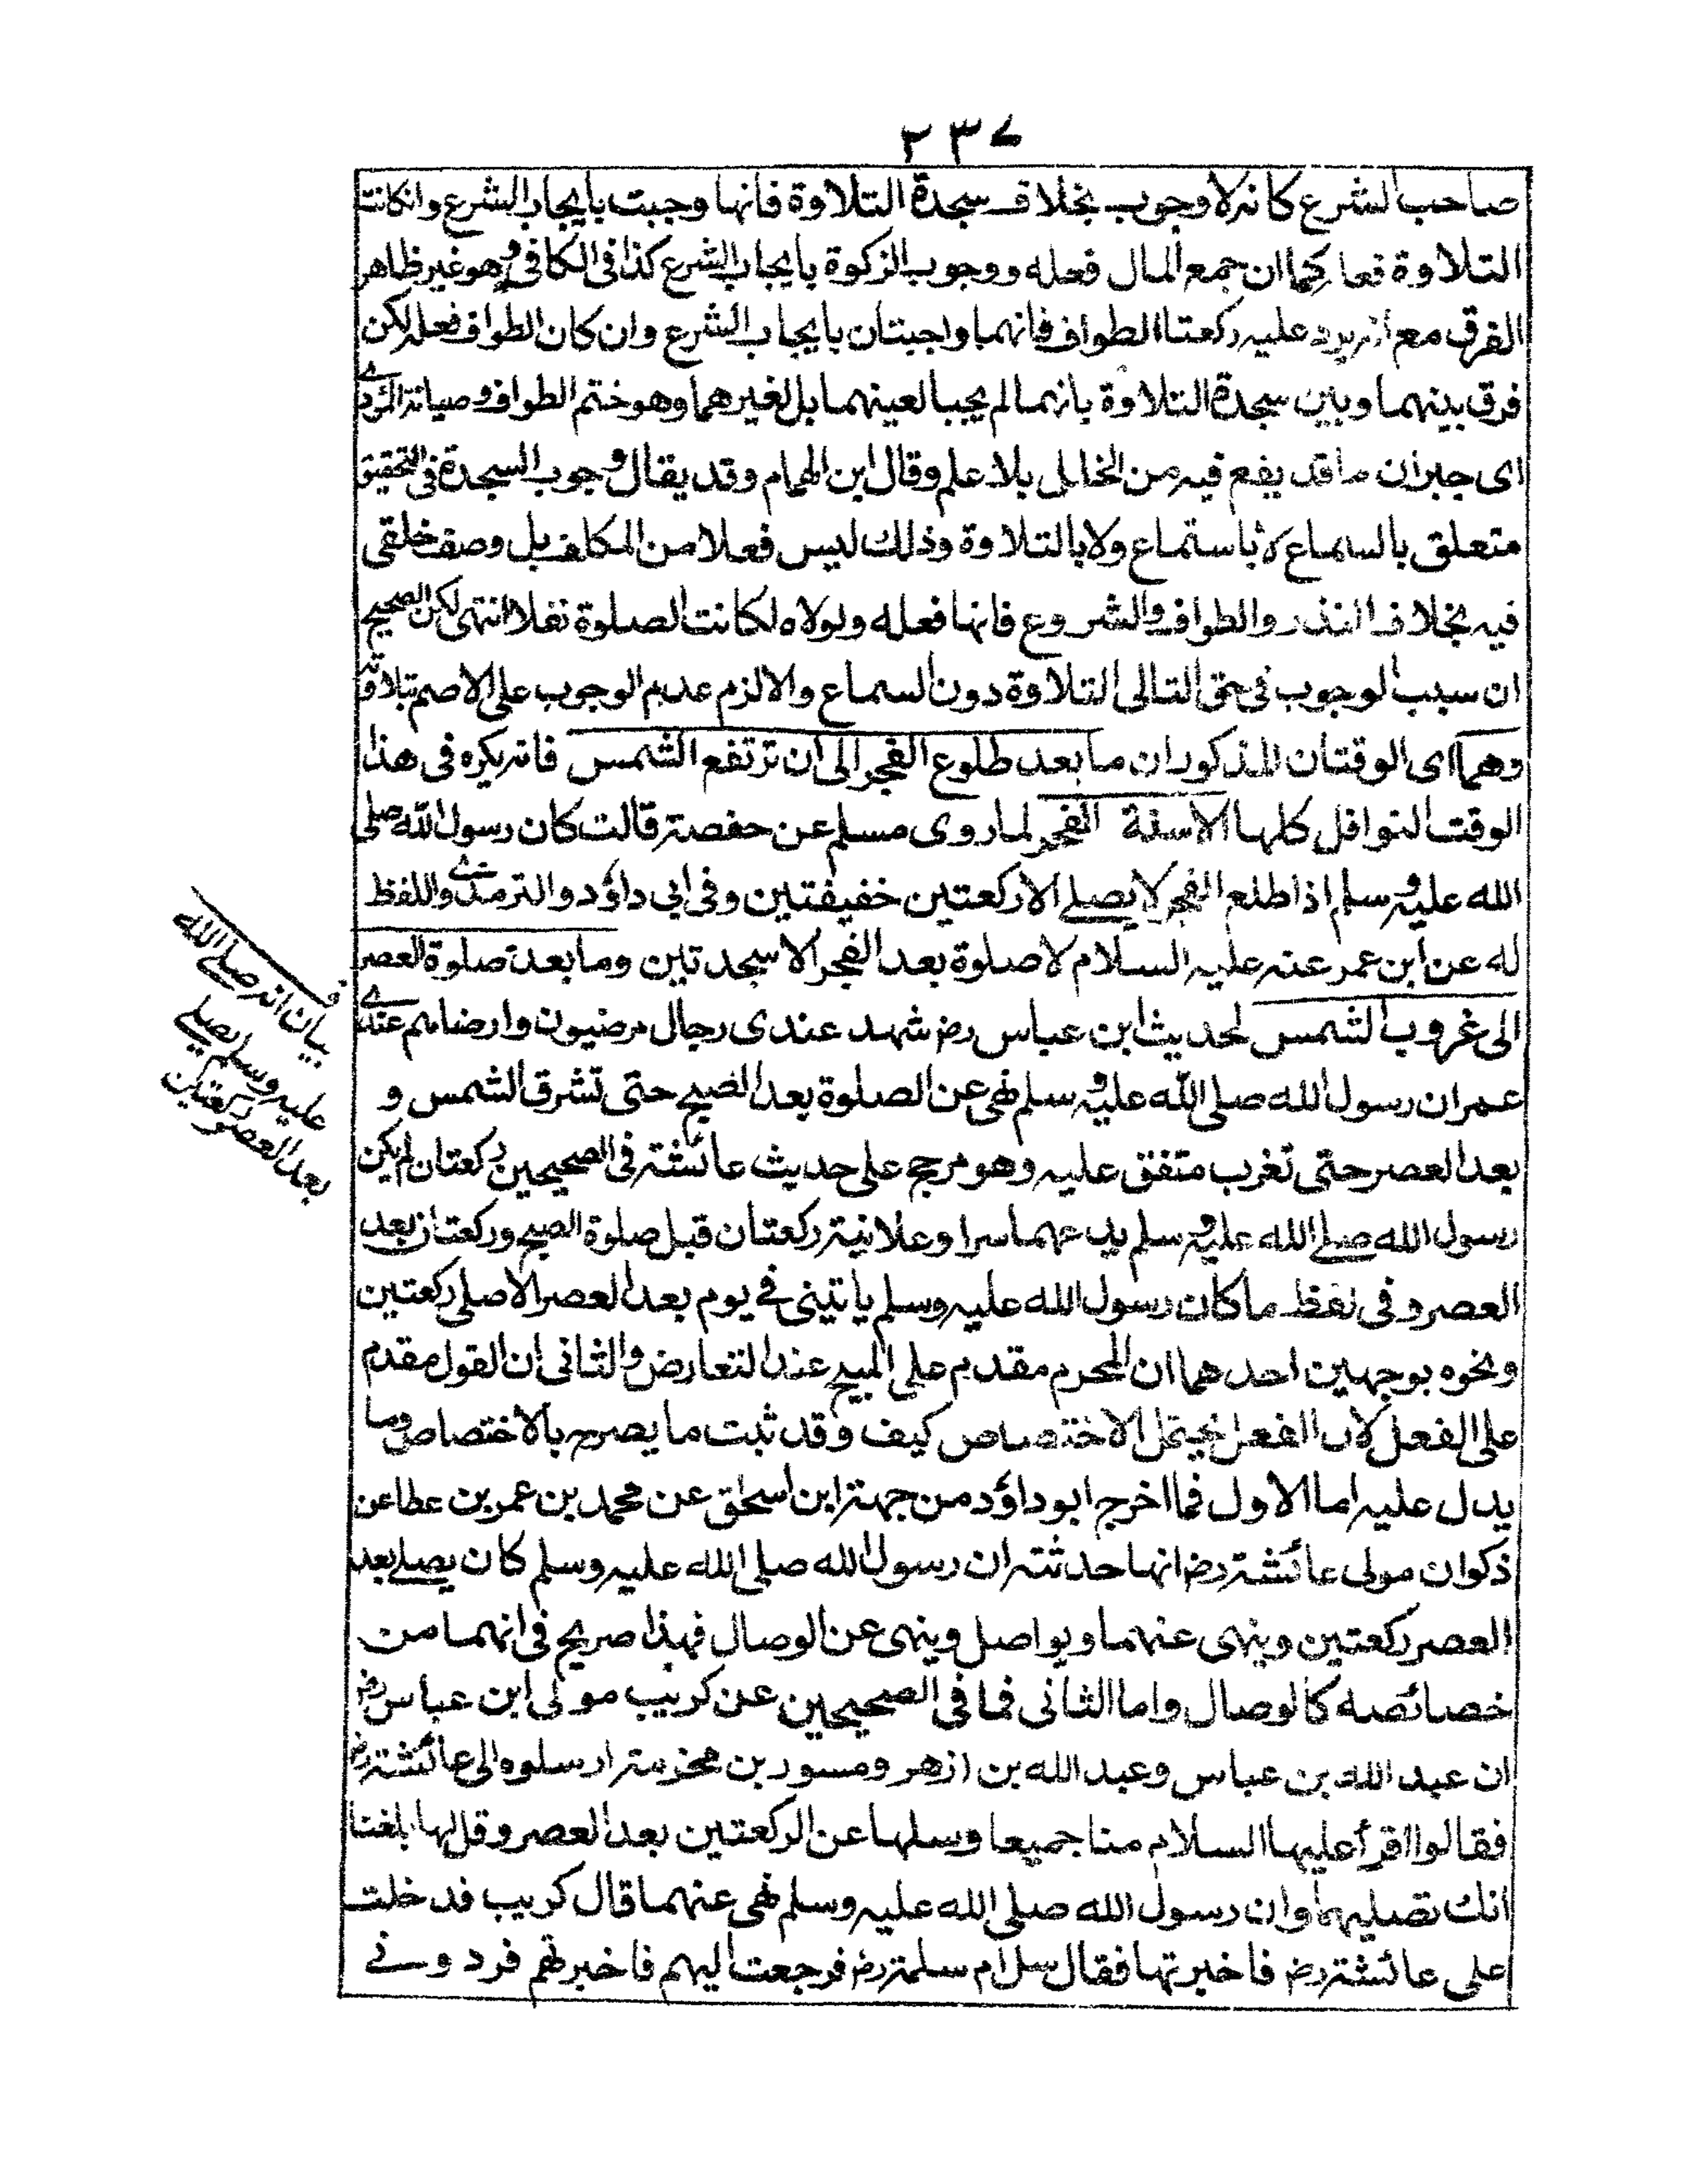 ٢٣٧
صاحب الشرع كانه لا وجوب بخلاف سجدة التلاوة فانها وجبت بايجاب الشرع وانكانت
التلاوة فعله كما ان جمع المال فعله ووجوب الزكوة بايجاب الشرع كذا فى الكافى وهو غير ظاهر
الفرق مع انه يرد عليه ركعتا الطواف فانهما واجبتان بايجاب الشرع وان كان الطواف فعله لكن
فرق بينهما وبين سجدة التلاوة بانهما لم يجبا لعينهما بل لغيرهما وهو ختم الطواف وصيانة المؤدى
اى جبران ما قد يقع فيه من الخلل بلا علم وقال ابن الهمام وقد يقال وجوب السجدة فى التحقيق
متعلق بالسماع لا باستماع ولا بالتلاوة وذلك ليس فعلا من المكلف بل وصف خلقى
فيه بخلاف النذر والطواف والشروع فانها فعله ولولاه لكانت الصلوة نفلا انتهى لكن الصحيح
ان سبب الوجوب فى حق التالى التلاوة دون السماع والا لزم عدم الوجوب على الاصم بتلاوته
وهما اى الوقتان المذكوران ما بعد طلوع الفجر الى ان ترتفع الشمس فانه يكره فى هذا
الوقت النوافل كلها الا سنة الفجر لما روى مسلم عن حفصة قالت كان رسول الله صلى
الله عليه وسلم اذا طلع الفجر لا يصلے الا ركعتين خفيفتين وفى ابي داؤد والترمذے واللفظ
له عن ابن عمر عنه عليه السلام لا صلوة بعد الفجر الا سجدتين وما بعد صلوة العصر
الى غروب الشمس لحديث ابن عباس رض شهد عندى رجال مرضيون وارضاهم عندے
عمر ان رسول الله صلى الله عليه وسلم نهى عن الصلوة بعد الصبح حتى تشرق الشمس و
بعد العصر حتى تغرب متفق عليه وهو مرجح على حديث عائشة فى الصحيحين ركعتان لم يكن
رسول الله صلے الله عليه وسلم يدعهما سرا وعلانية ركعتان قبل صلوة الصبح وركعتان بعد
العصر وفى لفظ ما كان رسول الله عليه وسلم ياتينى فے يوم بعد العصر الا صلى ركعتين
ونحوه بوجهين احدهما ان المحرم مقدم على المبيح عند التعارض والثانى ان القول مقدم
على الفعل لان الفعل يحتمل الاختصاص كيف وقد ثبت ما يصرح بالاختصاص وما
يدل عليه اما الاول فما اخرج ابو داؤد من جهة ابن اسحٰق عن محمد بن عمر بن عطا عن
ذكوان مولى عائشة رض انها حدثته ان رسول الله صلى الله عليه وسلم كان يصلے بعد
العصر ركعتين وينهى عنهما ويواصل وينهى عن الوصال فهذا صريح فى انهما من
خصائصه كالوصال واما الثانى فما فى الصحيحين عن كريب مولى ابن عباس رض
ان عبد الله بن عباس وعبد الله بن ازهر ومسور بن مخرمة ارسلوه الى عائشة رض
فقالوا اقرأ عليها السلام منا جميعا وسلها عن الركعتين بعد العصر وقل لها بلغنا
انك تصليهما وان رسول الله صلى الله عليه وسلم نهى عنهما قال كريب فدخلت
على عائشة رض فاخبرتها فقال سل ام سلمة رض فرجعت اليهم فاخبرتهم فردونے
ف
بيان انه صلے الله
عليه وسلم يصلے
ركعتين
بعد العصر